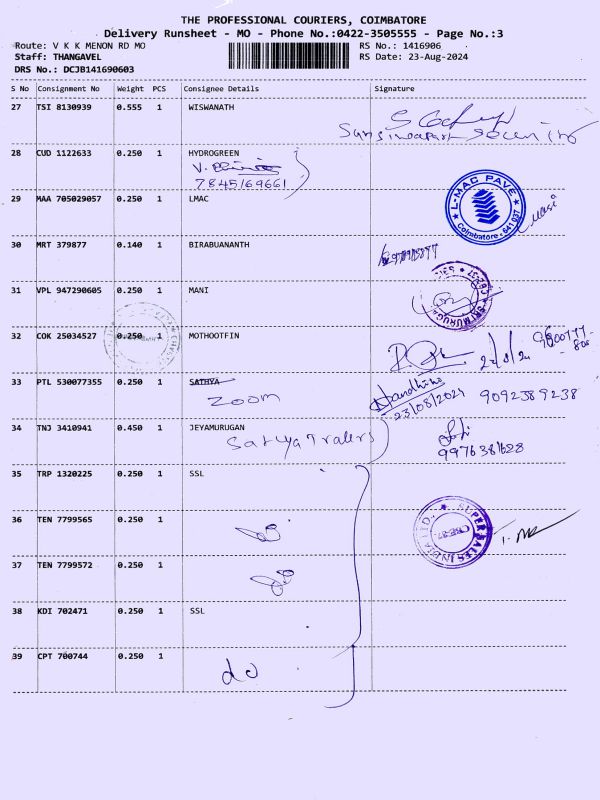 THE PROFESSIONAL COURIERS, COIMBATORE
Delivery Runsheet - MO - Phone No.:0422-3505555 - Page No.:3
Route: V K K MENON RD MO RS No.: 1416906
Staff: THANGAVEL RS Date: 23-Aug-2024
DRS No.: DCJB141690603
S No Consignment No Weight PCS Consignee Details Signature
27 TSI 8130939 0.555 1 WISWANATH
28 CUD 1122633 0.250 1 HYDROGREEN
7845169661
29 MAA 705029057 0.250 1 LMAC
L-MAC PAVE
Coimbatore - 641 037
30 MRT 379877 0.140 1 BIRABUANANTH
31 VPL 947290605 0.250 1 MANI
32 COK 25034527 0.250 1 MOTHOOTFIN
33 PTL 530077355 0.250 1 SATHYA
Zoom
23/08/2024 9092389238
34 TNJ 3410941 0.450 1 JEYAMURUGAN
9976381628
35 TRP 1320225 0.250 1 SSL
36 TEN 7799565 0.250 1
SUPER SALES INDIA LTD.
CBE-37.
37 TEN 7799572 0.250 1
38 KDI 702471 0.250 1 SSL
39 CPT 700744 0.250 1
do